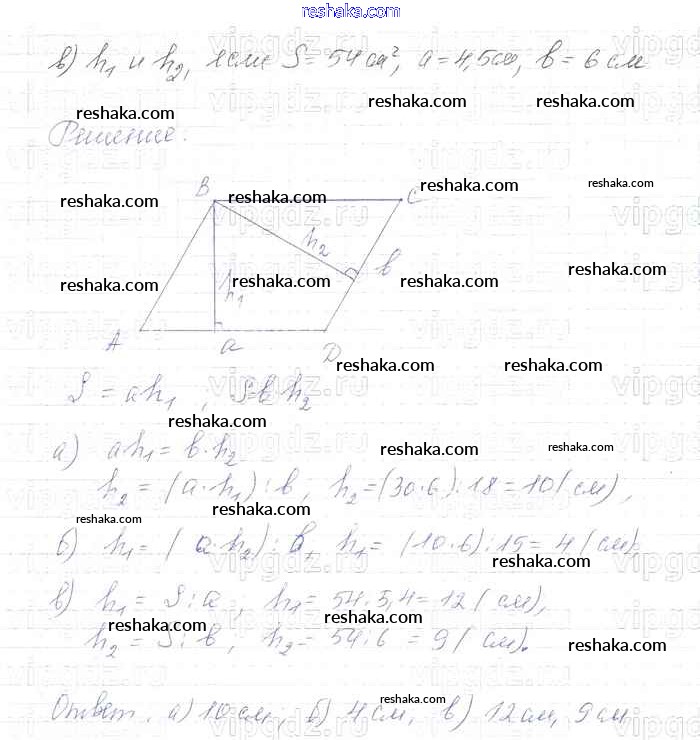 reshaka.com
в) h₁ и h₂, если S = 54 см², a = 4,5 см, b = 6 см
reshaka.com reshaka.com
reshaka.com
Решение:
B reshaka.com reshaka.com C reshaka.com
reshaka.com
h₂
reshaka.com reshaka.com reshaka.com reshaka.com
h₁ b
A a D
reshaka.com reshaka.com
S = ah₁, S = b h₂
reshaka.com
а) ah₁ = b · h₂
reshaka.com reshaka.com
h₂ = (a · h₁) : b; h₂ = (30 · 6) : 18 = 10 (см),
reshaka.com
б) h₁ = (a · h₂) : b, h₁ = (10 · 6) : 15 = 4 (см)
reshaka.com
в) h₁ = S : a, h₁ = 54 : 5,4 = 12 (см),
reshaka.com reshaka.com
h₂ = S : b; h₂ = 54 : 6 = 9 (см).
reshaka.com
reshaka.com
Ответ. а) 10 см; б) 4 см, в) 12 см, 9 см